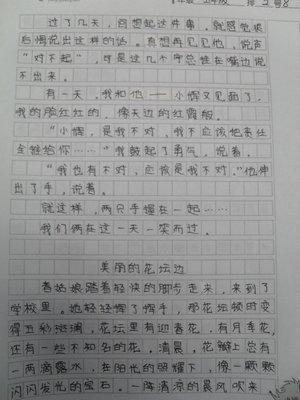 过了几天，回想起这件事，就感觉很
后悔说出这样的话。真想再见见他，说声
“对不起”，可是这几个字总挂在嘴边说
不出来。
有一天，我和他——小辉又见面了，
我的脸红红的，像天边的红霞般。
“小辉，是我不对，我不应该把责任
全推给你……”我鼓起了勇气，说着。
“我也有不对，应该是我不对。”他伸
出了手，说着。
就这样，两只手握在一起……
我们俩在这一天一笑而过。
美丽的花坛边
春姑娘踏着轻快的脚步走来，来到了
学校里。她轻轻挥了挥手，那花坛顿时变
得五彩斑斓，花坛里有迎春花，有月季花，
还有一些不知名的花。清晨，花瓣上总有
一两滴露水，在阳光的照耀下，像一颗颗
闪闪发光的宝石。一阵清凉的晨风吹来，